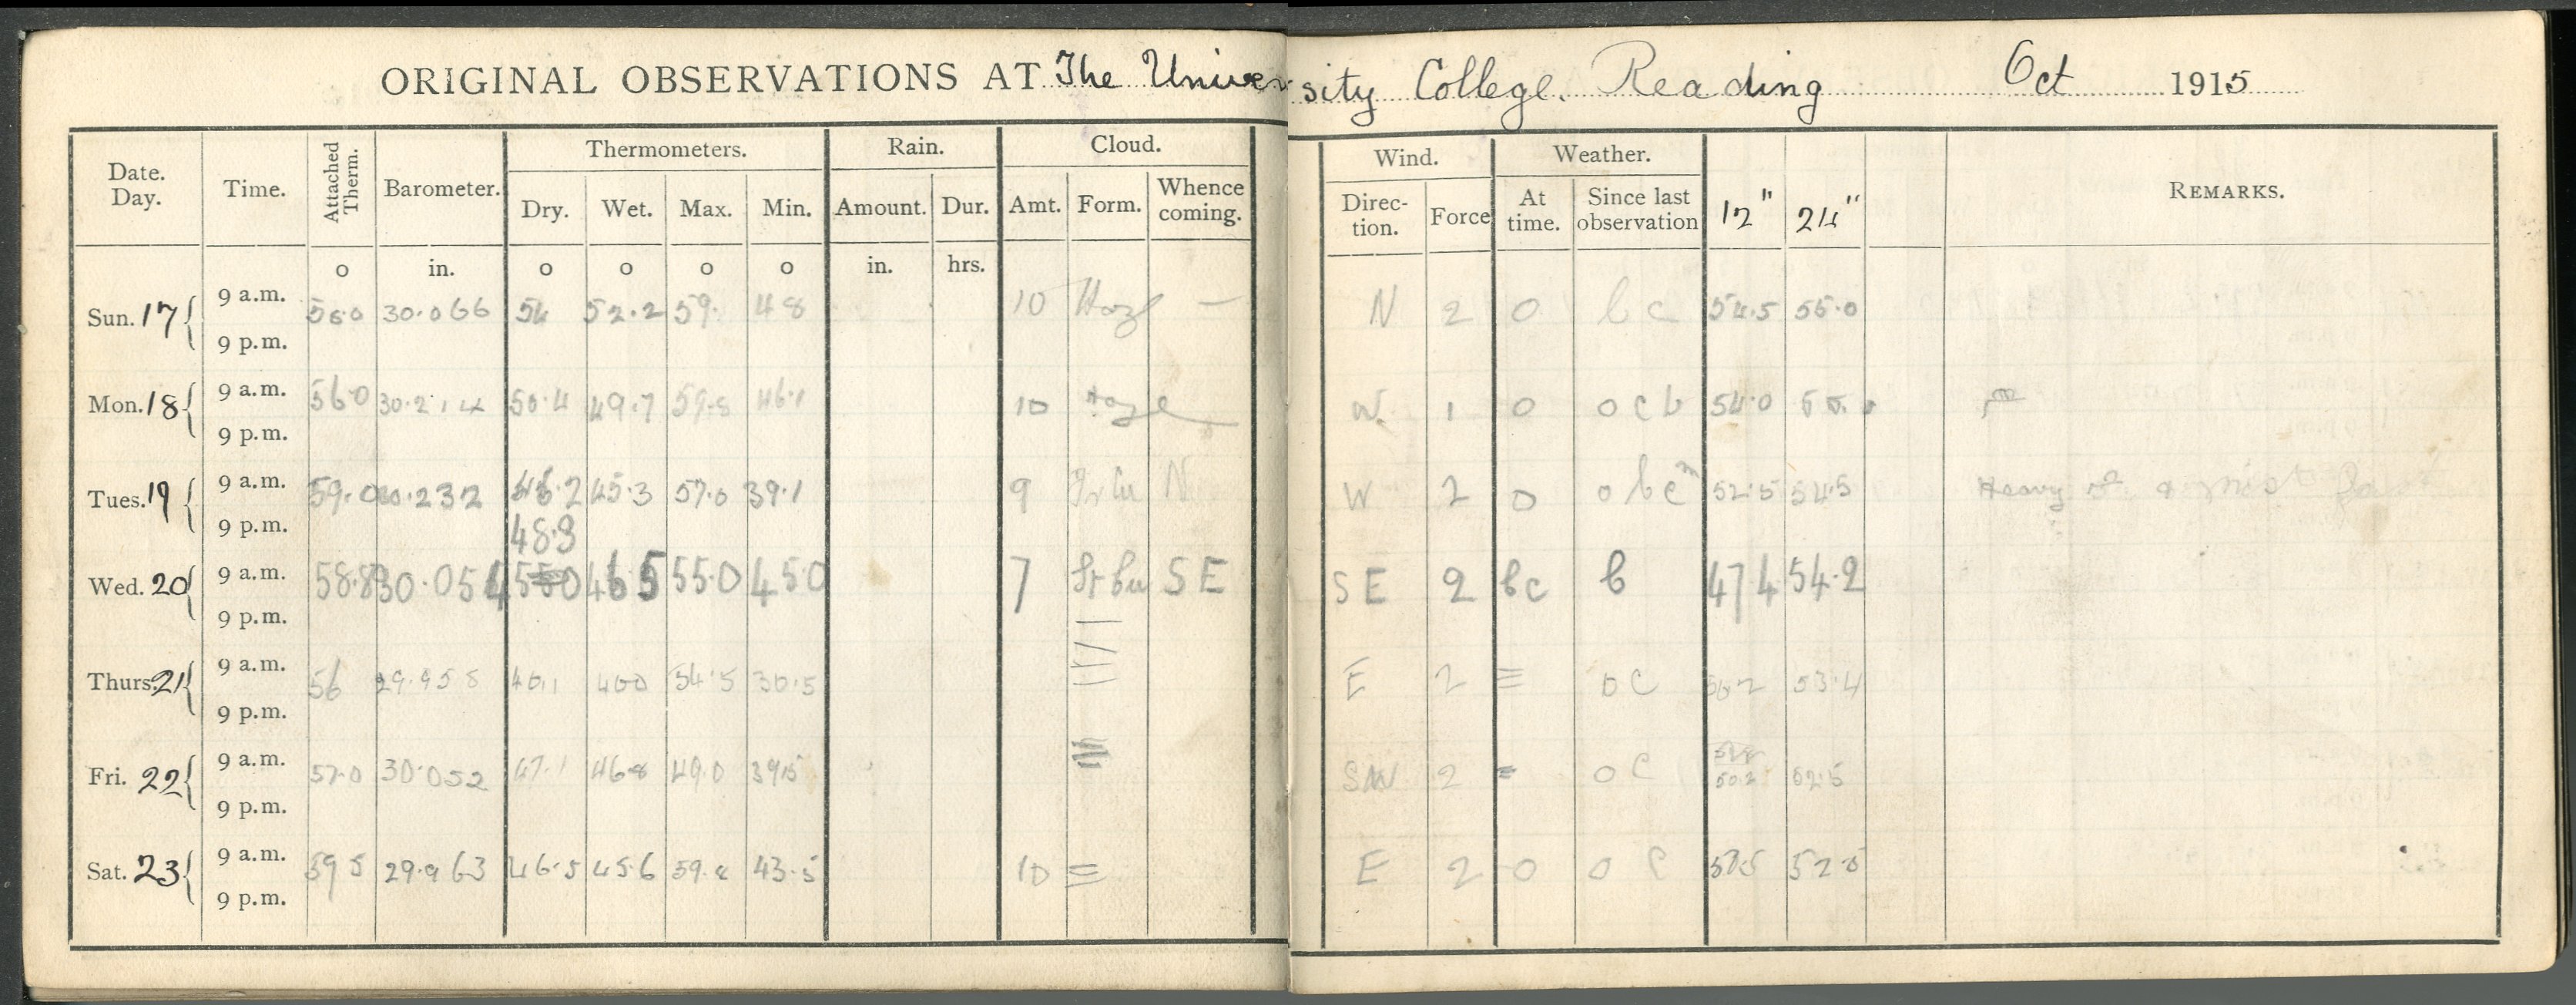 ORIGINAL OBSERVATIONS AT The University College. Reading Oct 1915
Date. Day. Time. Attached Therm. Barometer. Thermometers. Rain. Cloud. Wind. Weather. 12" 24" REMARKS.
Dry. Wet. Max. Min. Amount. Dur. Amt. Form. Whence coming. Direc- tion. Force At time. Since last observation
o in. o o o o in. hrs.
Sun. 17 9 a.m. 56.0 30.066 54 52.2 59. 48 10 Haze — N 2 0 b c 54.5 55.0
9 p.m.
Mon. 18 9 a.m. 56.0 30.214 50.4 49.7 59.8 46.1 10 Haze W. 1 0 o c b 54.0
9 p.m.
Tues. 19 9 a.m. 59.0 30.232 45.3 57.0 39.1 9 N W 2 0 o b c m 52.5 54.5 Heavy mist
9 p.m. 48.9
Wed. 20 9 a.m. 58.8 30.054 46.5 55.0 45.0 7 St Cu S E S E 2 bc b 47.4 54.2
9 p.m.
Thurs. 21 9 a.m. 56 29.958 40.1 40.0 54.5 30.5 E 2 ≡ o c 53.4
9 p.m.
Fri. 22 9 a.m. 57.0 30.052 47.1 46.8 49.0 39.5 SW 2 = o c 50.2 52.5
9 p.m.
Sat. 23 9 a.m. 59.5 29.963 46.5 45.6 59. 43.5 10 = E 2 0 o c 52.5
9 p.m.